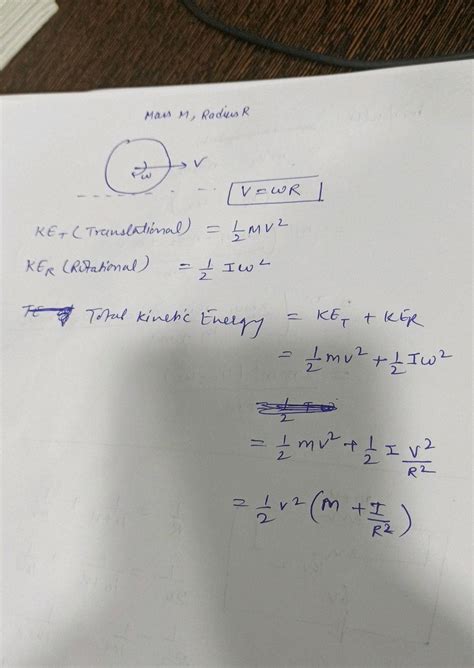 Mass M, Radius R
ω
V
V = ωR
KE_T (Translational) = 1/2 MV²
KE_R (Rotational) = 1/2 Iω²
Total Kinetic Energy = KE_T + KE_R
= 1/2 mv² + 1/2 Iω²
= 1/2 mv² + 1/2 I V²/R²
= 1/2 v² (M + I/R²)